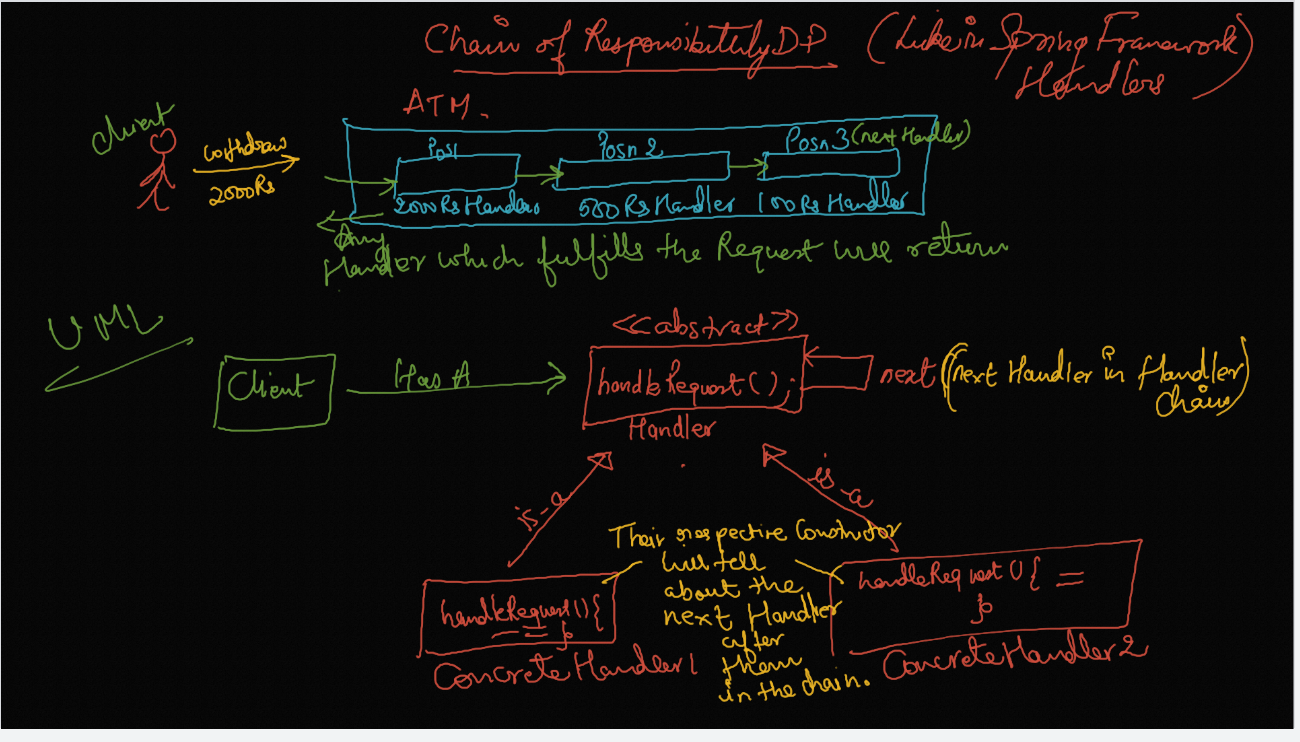 Chain of Responsibility DP (Like in Spring Framework)
Handlers
ATM.
client
withdraw
2000Rs
Pos1
Posn 2
Posn 3 (next Handler)
2000Rs Handler
500 Rs Handler
100 Rs Handler
Any
Handler which fulfills the Request will return
UML
Client
Has A
<<abstract>>
handleRequest();
Handler
next (next Handler in Handler
Chain)
is-a
is-a
Their respective Constructor
will tell
about the
next Handler
after
them
in the chain.
handleRequest(){
= }
ConcreteHandler1
handleRequest(){ =
}
ConcreteHandler2